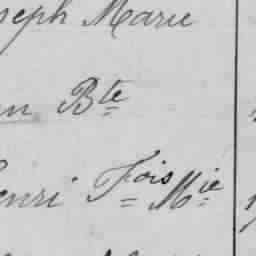 seph Marie
n Bte
enri Fois Mie